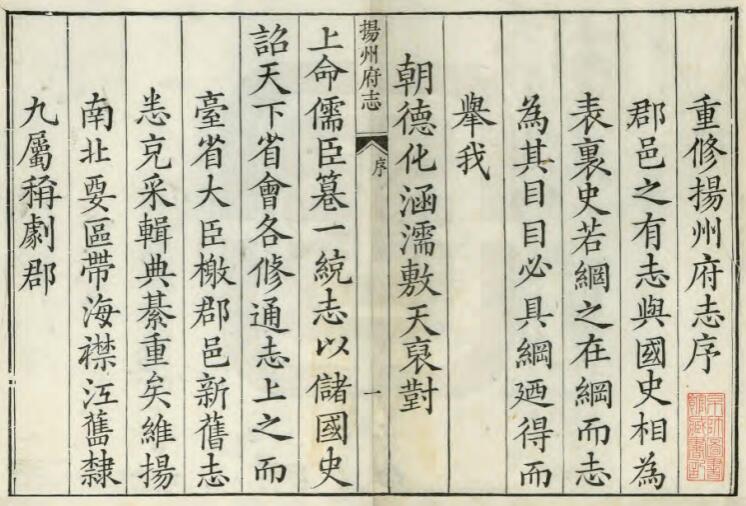 重修揚州府志序
郡邑之有志與國史相為
表裏史若綱之在綱而志
為其目目必具綱廼得而
舉我
朝德化涵濡敷天裒對
揚州府志
序
一
上命儒臣纂一統志以儲國史
詔天下省會各修通志上之而
臺省大臣檄郡邑新舊志
悉克采輯典綦重矣維揚
南北要區帶海襟江舊隸
九屬稱劇郡
京師圖書
館藏書記